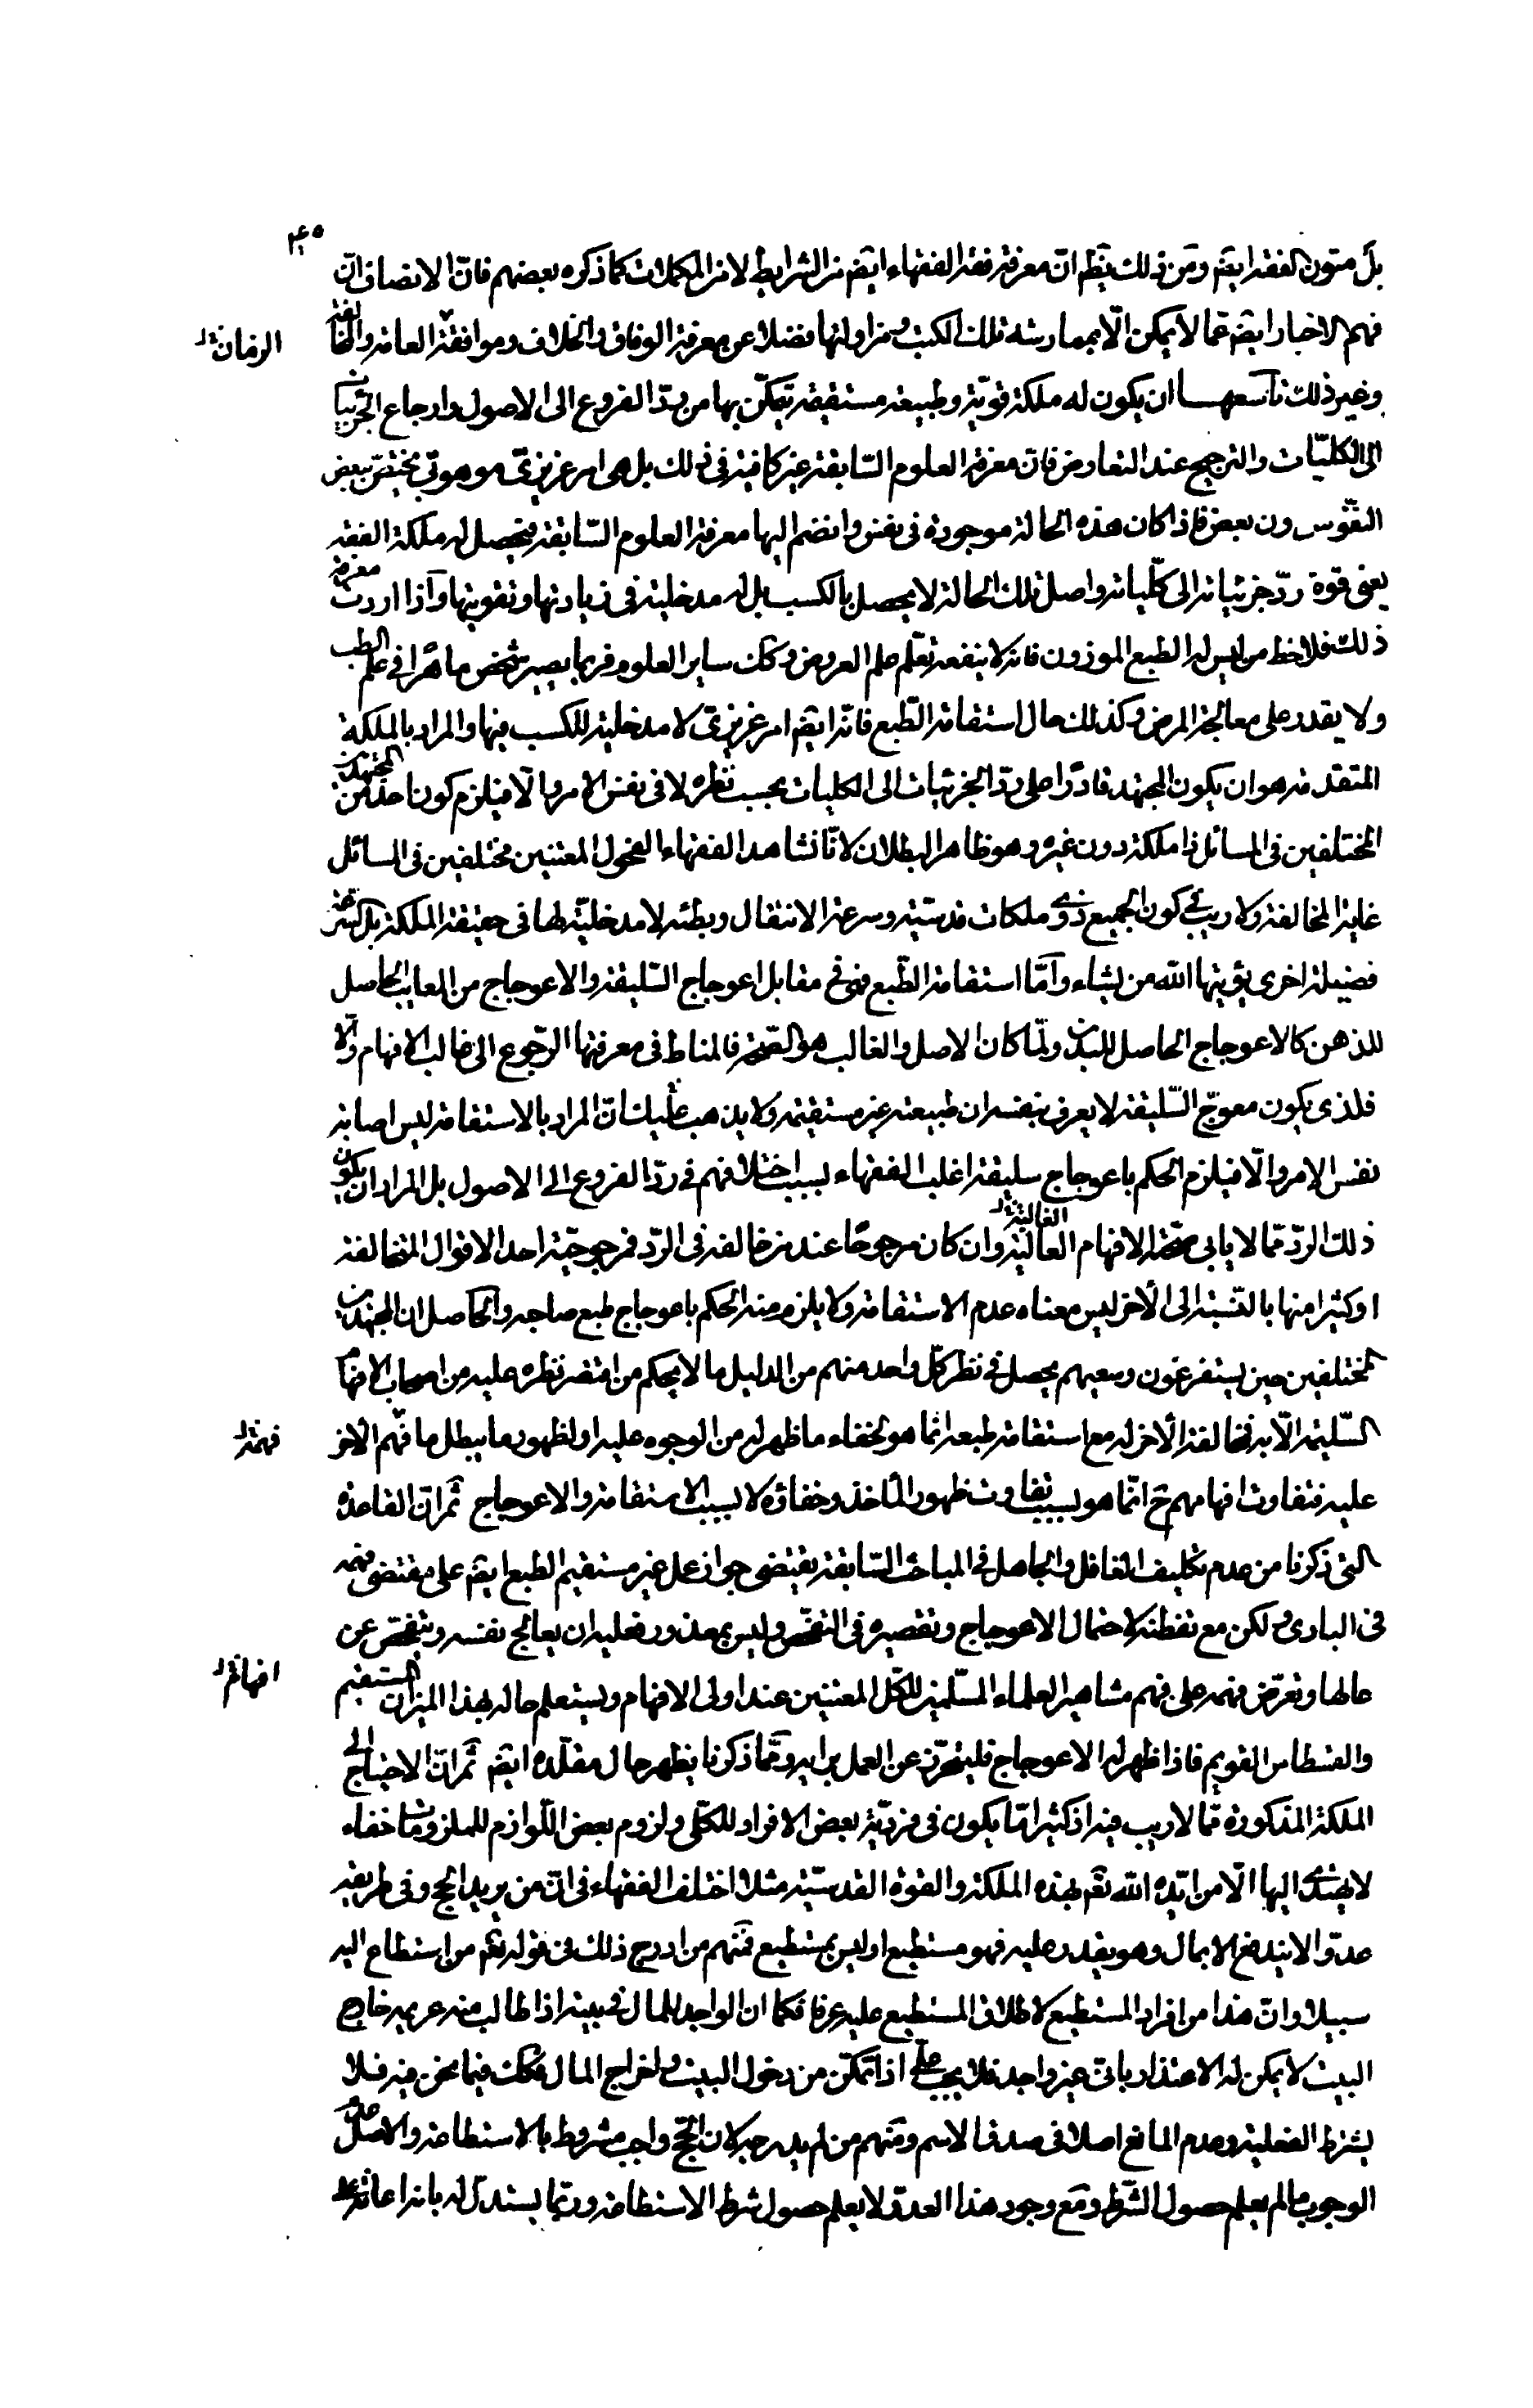 بل متون الفقه ايضم ومن ذلك يظهر انّ معرفة فقه الفقهاء ايضم من الشرايط لا من المكملات كما ذكره بعضهم فانّ الانصاف انّ
فهم الاخبار ايضم ممّا لا يمكن الّا بممارسة تلك الكتب ومزاولتها فضلا عن معرفة الوفاق والخلاف وموافقة العامة والمخالفة
وغير ذلك تاسعها ان يكون له ملكة قويّة وطبيعة مستقيمة يتمكّن بها من ردّ الفروع الى الاصول وارجاع الجزئيات
الى الكليّات والترجيح عند التعارض فان معرفة العلوم السّابقة غير كافية فى ذلك بل هى امر غريزىّ موهوبىّ يختصّ ببعض
النفّوس دون بعض فاذا كان هذه الحالة موجودة فى نفس وانضم اليها معرفة العلوم السّابقة فيحصل له ملكة الفقه
يعنى قوة ردّ جزئياته الى كلّياته واصل تلك الحالة لا يحصل بالكسب بل له مدخلية فى زيادتها وتقويتها واذا اردت معرفة
ذلك فلاحظ من ليس له الطبع الموزون فانه لا ينفعه تعلّم علم العروض وكك ساير العلوم فربما يصير شخص ماهرا فى علم الطب
ولا يقدر على معالجة المرض وكذلك حال استقامة الطّبع فانّه ايضم امر غريزىّ لا مدخلية للكسب فيها والمراد بالملكة
المتقدمة هو ان يكون المجتهد قادرا على ردّ الجزئيات الى الكليات بحسب نظره لا فى نفس الامر والّا فيلزم كون احد من المجتهدين
المختلفين فى المسائل ذا ملكة دون غيره وهو ظاهر البطلان لانّا نشاهد الفقهاء الفحول المعتنين مختلفين فى المسائل
غاية المخالفة ولا ريب فى كون الجميع ذوى ملكات قدسيّة وسرعة الانتقال وبطئه لا مدخليّة لها فى حقيقة الملكة بل السرعة
فضيلة اخرى يؤتيها الله من يشاء وامّا استقامة الطّبع فهى فى مقابل اعوجاج السّليقة والاعوجاج من المعايب الحاصل
للذهن كالاعوجاج الحاصل للبدن ولمّا كان الاصل والغالب هو الصّحّة فالمناط فى معرفتها الرّجوع الى غالب الافهام والّا
فلذى يكون معوجّ السّليقة لا يعرف بنفسه ان طبيعته غير مستقيمة ولا يذهب عليك انّ المراد بالاستقامة ليس اصابة
نفس الامر والّا فيلزم الحكم باعوجاج سليقة اغلب الفقهاء بسبب اختلافهم فى ردّ الفروع الى الاصول بل المراد ان يكون
ذلك الردّ ممّا لا يابى صحّته الافهام العالية الغالبة وان كان مرجوحا عند من خالفه فى الردّ فمرجوحيّة احد الاقوال المتخالفة
او كثير منها بالنّسبة الى الأخر ليس معناه عدم الاستقامة ولا يلزم منه الحكم باعوجاج طبع صاحبه والحاصل ان المجتهدين
المختلفين حين يستفرغون وسعهم يحصل فى نظر كلّ واحد منهم من الدليل ما لا يحكم من اقتصر نظره عليه من اصحاب الافهام
السّليمة الّا به فمخالفة الأخر له مع استقامة طبعه انّما هو لخفاء ما ظهر له من الوجوه عليه او لظهور ما يبطل ما فهم الاخر
عليه فتفاوت افهامهم ح انّما هو بسبب تفاوت ظهور المأخذ وخفاؤه لا بسبب الاستقامة والاعوجاج ثم انّ القاعدة
التى ذكرنا من عدم تكليف الغافل والجاهل فى المباحث السّابقة يقتضى جواز عمل غير مستقيم الطبع ايضم على مقتضى فهمه
فى البادى ولكن مع تفطنه لاحتمال الاعوجاج وتقصيره فى التفحّص وليس بمعذور فعليه ان يعالج نفسه ويتفحّص عن
حالها ويعرّض فهمه على فهم مشاهير العلماء المسلّمين للكلّ المعتنين عند اولى الافهام ويستعلم حاله بهذا الميزان المستقيم
والقسطاس القويم فاذا ظهر له الاعوجاج فليتحرّز عن العمل برايه وممّا ذكرنا يظهر حال مقلّده ايضم ثم انّ الاحتياج الى
الملكة المذكورة ممّا لا ريب فيه اذ كثيرا مّا يكون فى فرديّة بعض الافراد للكلّى ولزوم بعض اللّوازم للملزومات خفاء
لا يهتدى اليها الّا من ايّده الله تعم بهذه الملكة والقوة القدسيّة مثلا اختلف الفقهاء فى انّ من يريد الحج وفى طريقه
عدوّ لا يندفع الا بمال وهو يقدر عليه فهو مستطيع او ليس بمستطيع فمنهم من ادرج ذلك فى قوله تعم من استطاع اليه
سبيلا وانّ هذا من افراد المستطيع لاطلاق المستطيع عليه عرفا فكما ان الواجد للمال فى بيته اذا طالب منه غريمه خارج
البيت لا يمكن له الاعتذار بانّى غير واجد فلا يجب علىّ اذا تمكّن من دخول البيت واخراج المال فكك فيما نحن فيه فلا
يشترط الفعلية وعدم المانع اصلا فى صدق الاسم ومنهم من لم يدرجه لان الحجّ واجب مشروط بالاستطاعة والاصل عدم
الوجوب ما لم يعلم حصول الشّرط ومع وجود هذا العدوّ لا يعلم حصول شرط الاستطاعة وربّما يستدلّ له بانه اعانة على